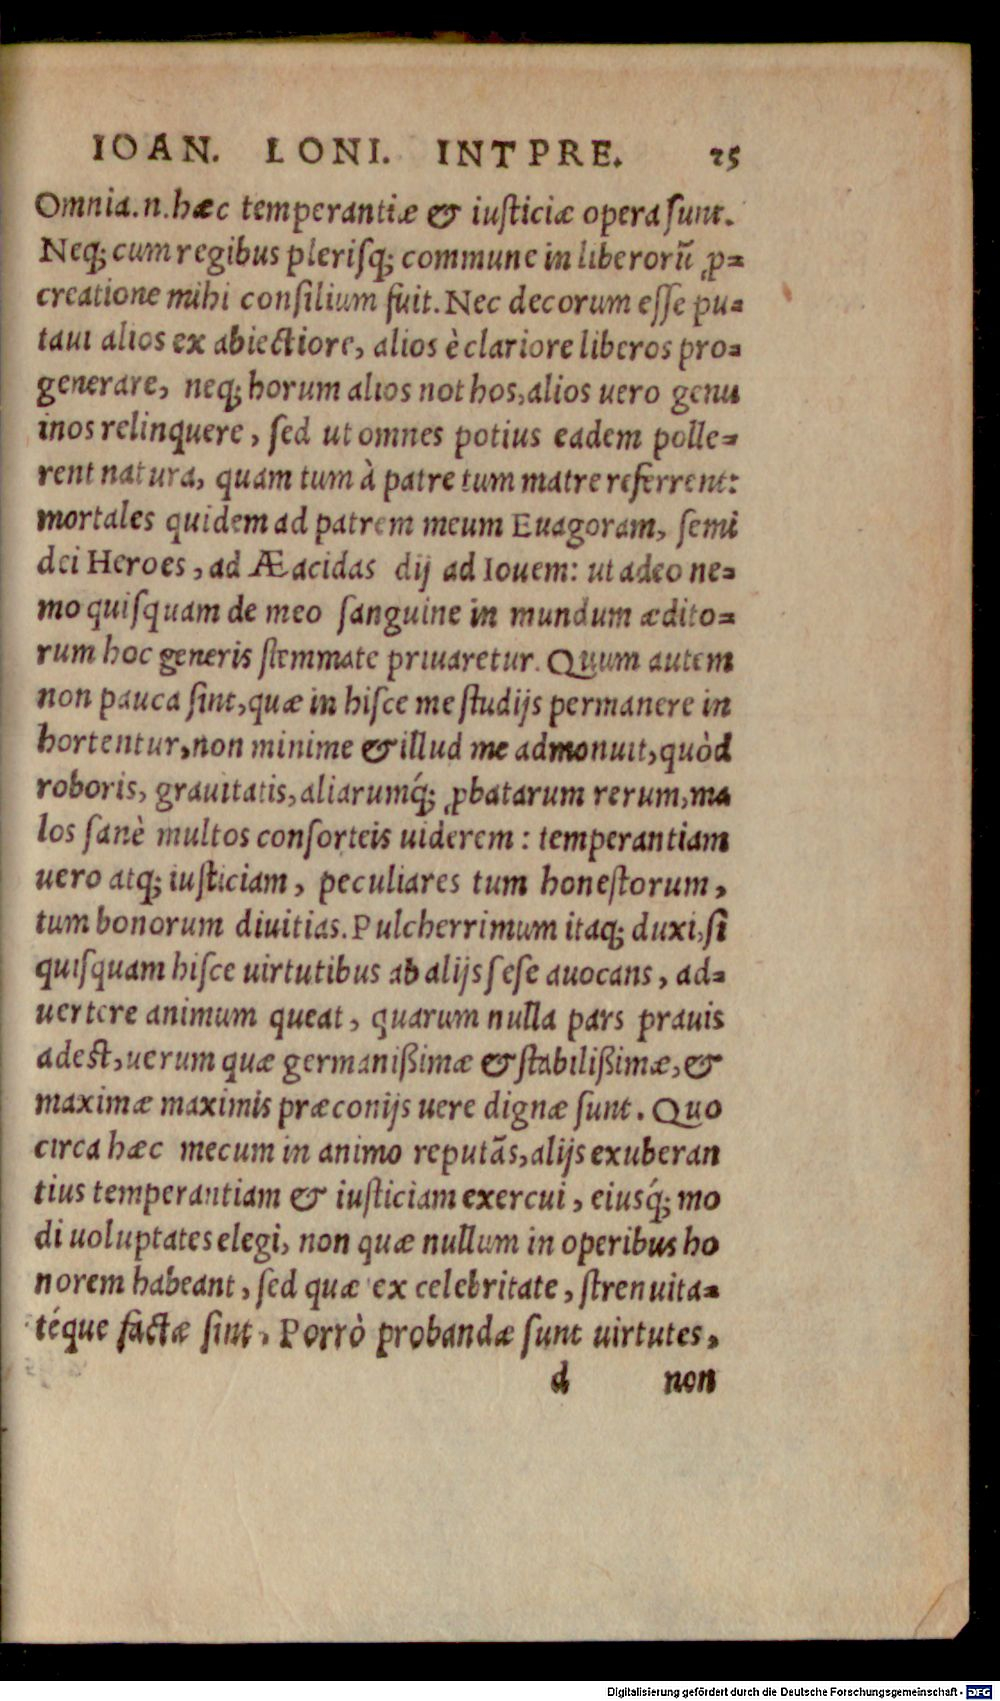 IOAN. LONI. INTPRE. 25
Omnia.n.hæc temperantiæ & iuſticiæ opera ſunt.
Neq; cum regibus pleriſq; commune in liberorũ ꝓ=
creatione mihi conſilium fuit. Nec decorum eſſe pu=
taui alios ex abiectiore, alios è clariore liberos pro=
generare, neq; horum alios nothos, alios uero genu
inos relinquere, ſed ut omnes potius eadem polle=
rent natura, quam tum à patre tum matre referrent:
mortales quidem ad patrem meum Euagoram, ſemi
dei Heroes, ad Æacidas dij ad Iouem: ut adeo ne=
mo quiſquam de meo ſanguine in mundum ædito=
rum hoc generis ſtemmate priuaretur. Quum autem
non pauca ſint, quæ in hiſce me ſtudijs permanere in
hortentur, non minime & illud me admonuit, quòd
roboris, grauitatis, aliarumq́; ꝓbatarum rerum, ma
los ſanè multos conſorteis uiderem: temperantiam
uero atq; iuſticiam, peculiares tum honeſtorum,
tum bonorum diuitias. Pulcherrimum itaq; duxi, ſi
quiſquam hiſce uirtutibus ab alijs ſeſe auocans, ad=
uertere animum queat, quarum nulla pars prauis
adeſt, uerum quæ germanißimæ & ſtabilißimæ, &
maximæ maximis præconijs uere dignæ ſunt. Quo
circa hæc mecum in animo reputãs, alijs exuberan
tius temperantiam & iuſticiam exercui, eiusq́; mo
di uoluptates elegi, non quæ nullum in operibus ho
norem habeant, ſed quæ ex celebritate, ſtrenuita=
téque factæ ſint. Porrò probandæ ſunt uirtutes,
d non
Digitalisierung gefördert durch die Deutsche Forschungsgemeinschaft - DFG